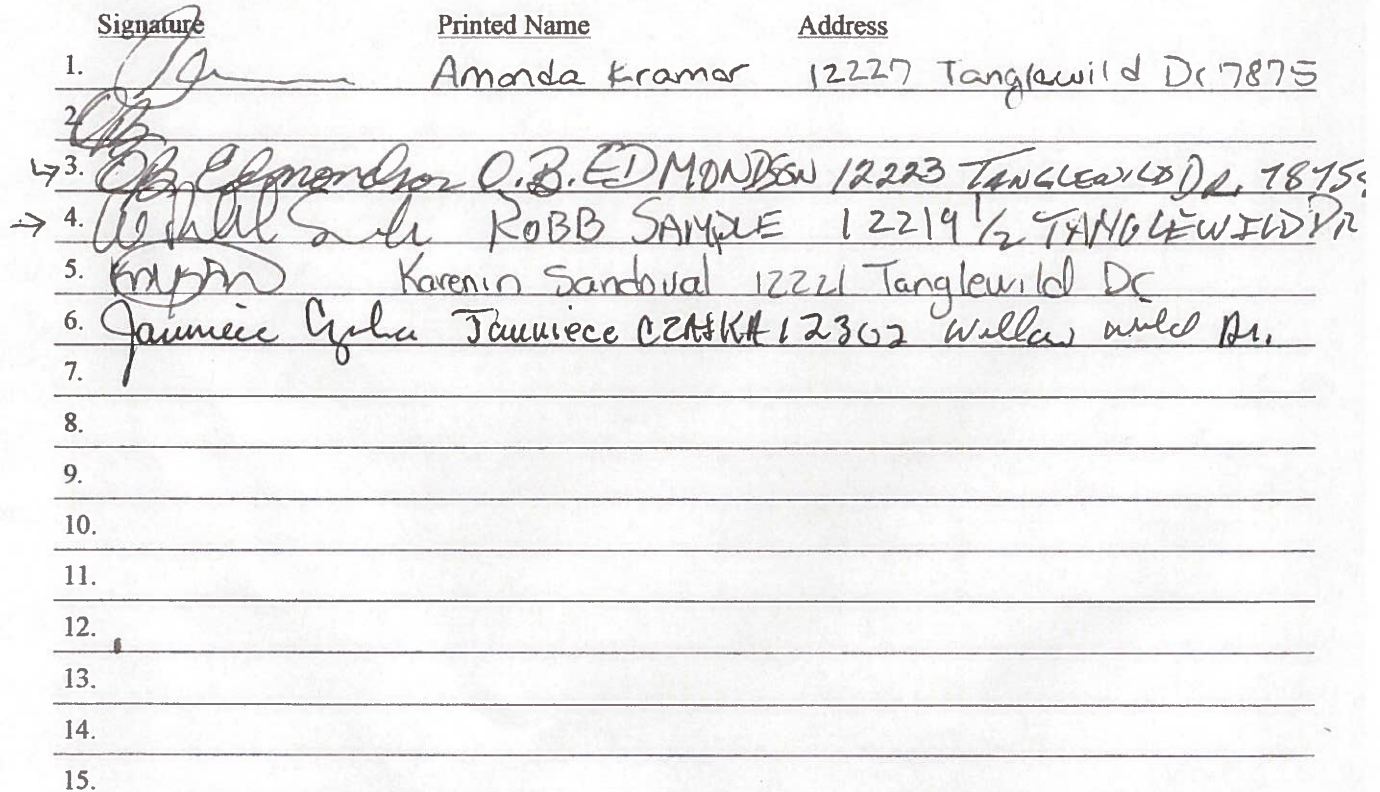 Signature Printed Name Address
1. Amanda Kramar 12227 Tanglewild Dr 7875
2.
3. OB Edmondson O.B. EDMONDSON 12223 TANGLEWILD DR. 7875
4. ROBB SAMPLE 12219 1/2 TANGLEWILD DR
5. Karenin Sandoval 12221 Tanglewild Dr
6. Jauniece Jauniece CZAJKA 12302 Willow wild Dr.
7.
8.
9.
10.
11.
12.
13.
14.
15.